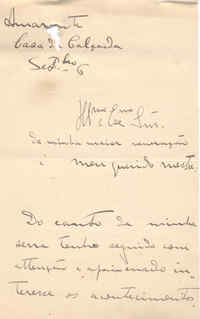 Amarante
Casa da Calçada
Setbro 6
da minha maior veneração
e meu querido mestre
Do canto da minha
serra tenho seguido com
attenção e apaixonado in-
teresse os acontecimentos